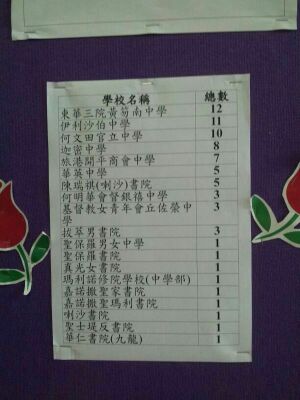 學校名稱 總數
東華三院黃笏南中學 12
伊利沙伯中學 11
何文田官立中學 10
迦密中學 8
旅港開平商會中學 7
華英中學 5
陳瑞祺(喇沙)書院 5
何明華會督銀禧中學 3
基督教女青年會丘佐榮中 3
學
拔萃男書院 3
聖保羅男女中學 1
聖保羅書院 1
真光女書院 1
瑪利諾修院學校(中學部) 1
嘉諾撒聖家書院 1
嘉諾撒聖瑪利書院 1
喇沙書院 1
聖士堤反書院 1
華仁書院(九龍) 1